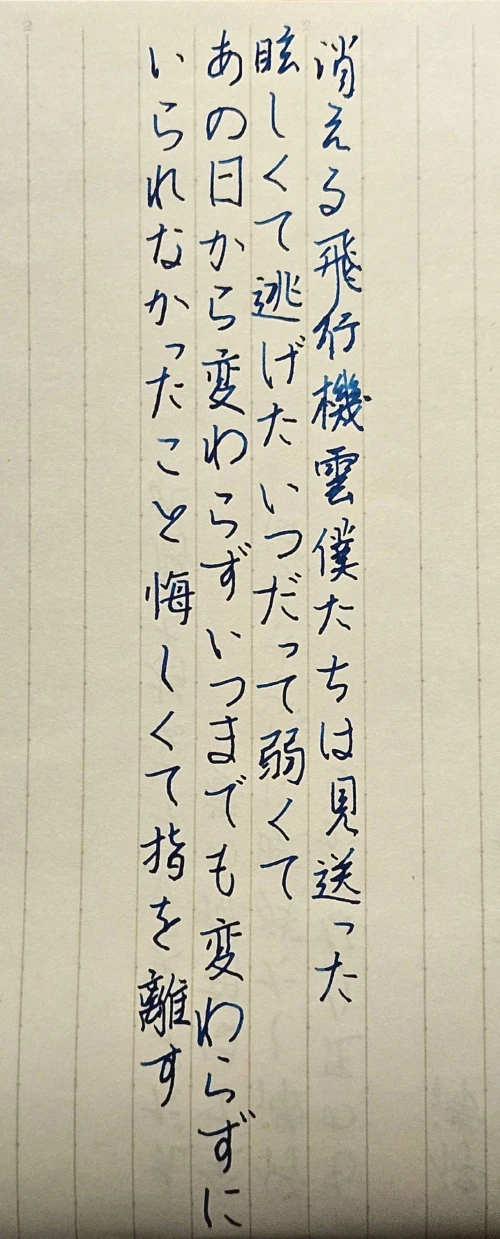 消える飛行機雲僕たちは見送った
眩しくて逃げたいつだって弱くて
あの日から変わらずいつまでも変わらずに
いられなかったこと悔しくて指を離す